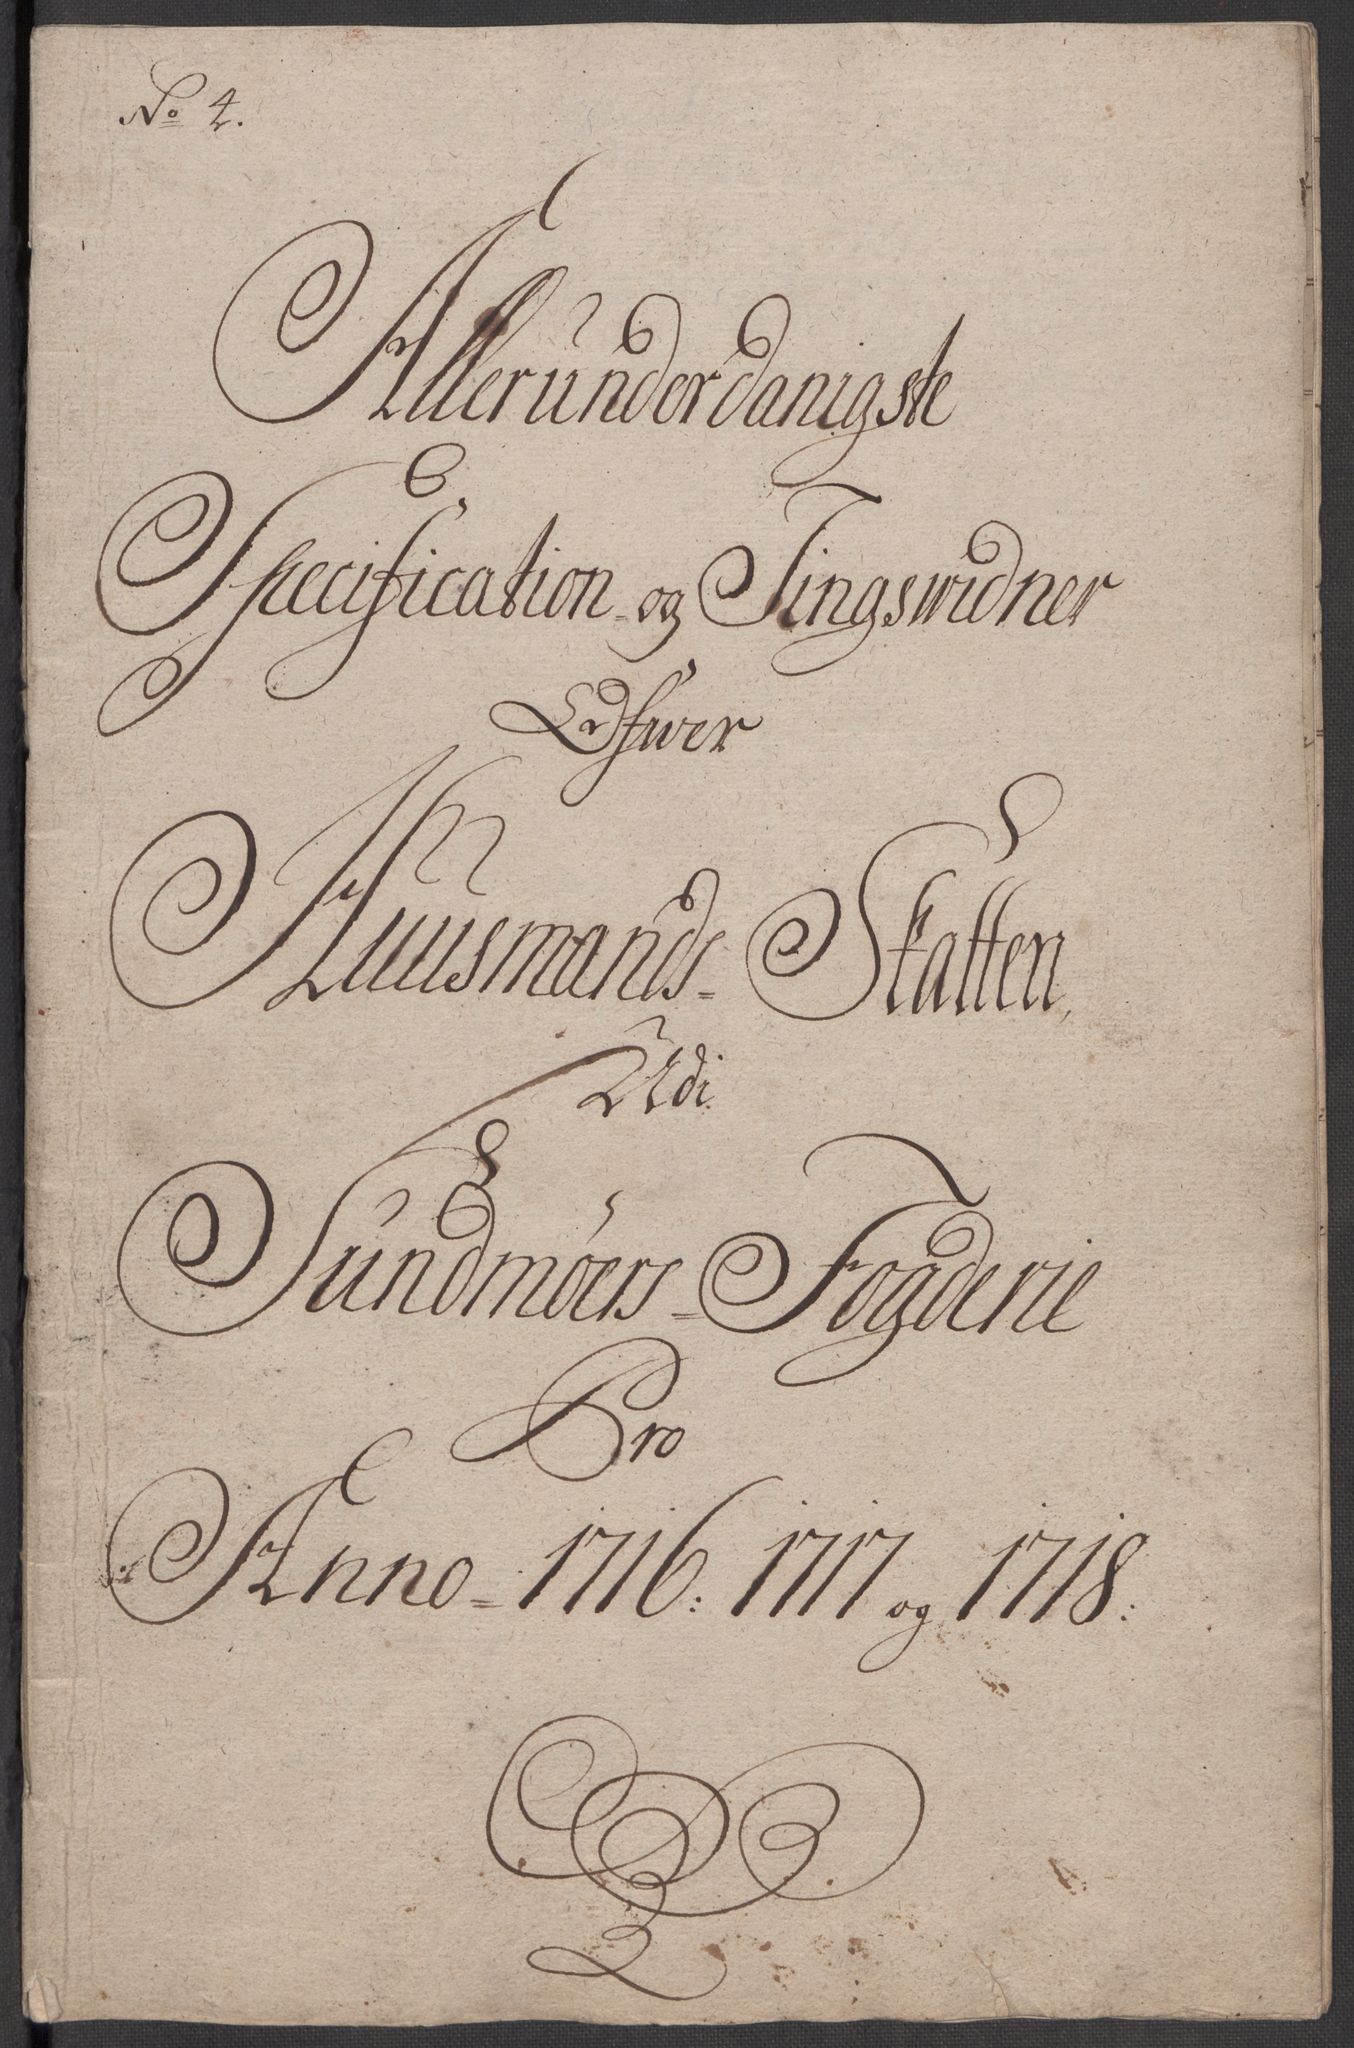 No 4.
Allerunderdanigste
Specification og Tingswidner
Ofwer
Huusmands-Skatten,
Udi
Sundmöers-Fogderie
Pro
Anno 1716: 1717 og 1718: